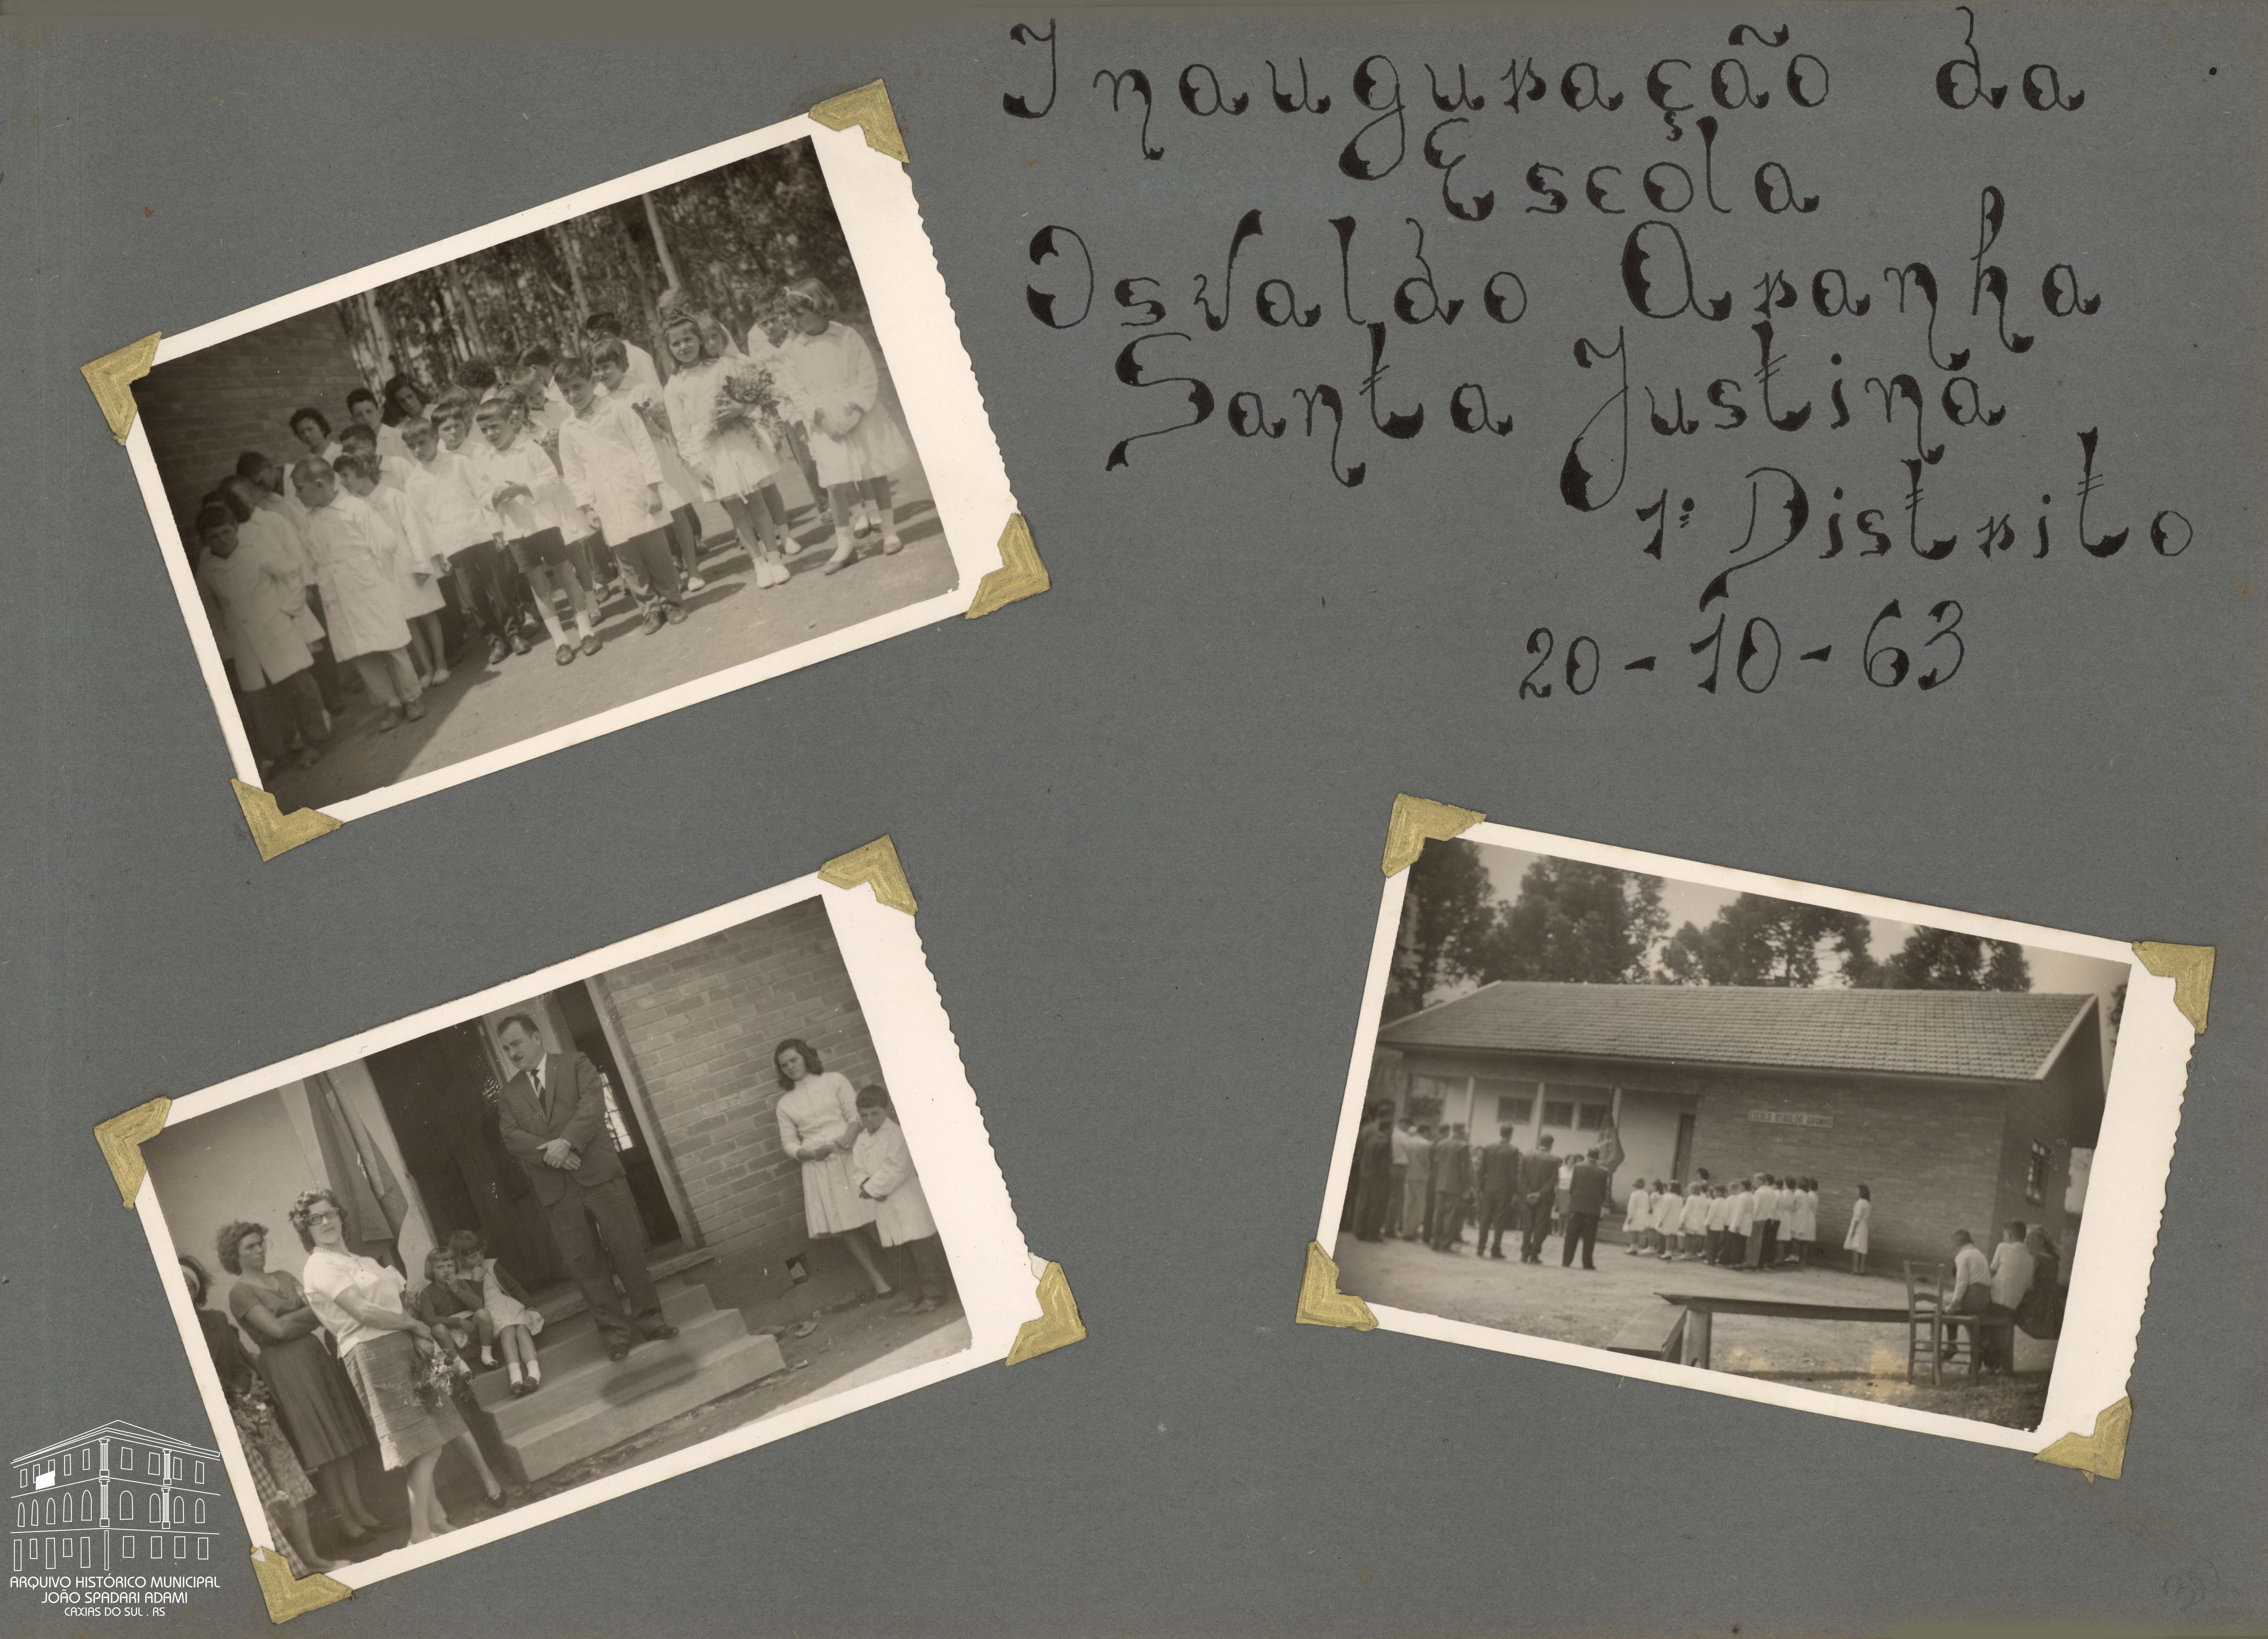 Inauguração da
Escola
Osvaldo Aranha
Santa Justina
1º Distrito
20-10-63
ESCOLA OSVALDO ARANHA
ARQUIVO HISTÓRICO MUNICIPAL
JOÃO SPADARI ADAMI
CAXIAS DO SUL . RS